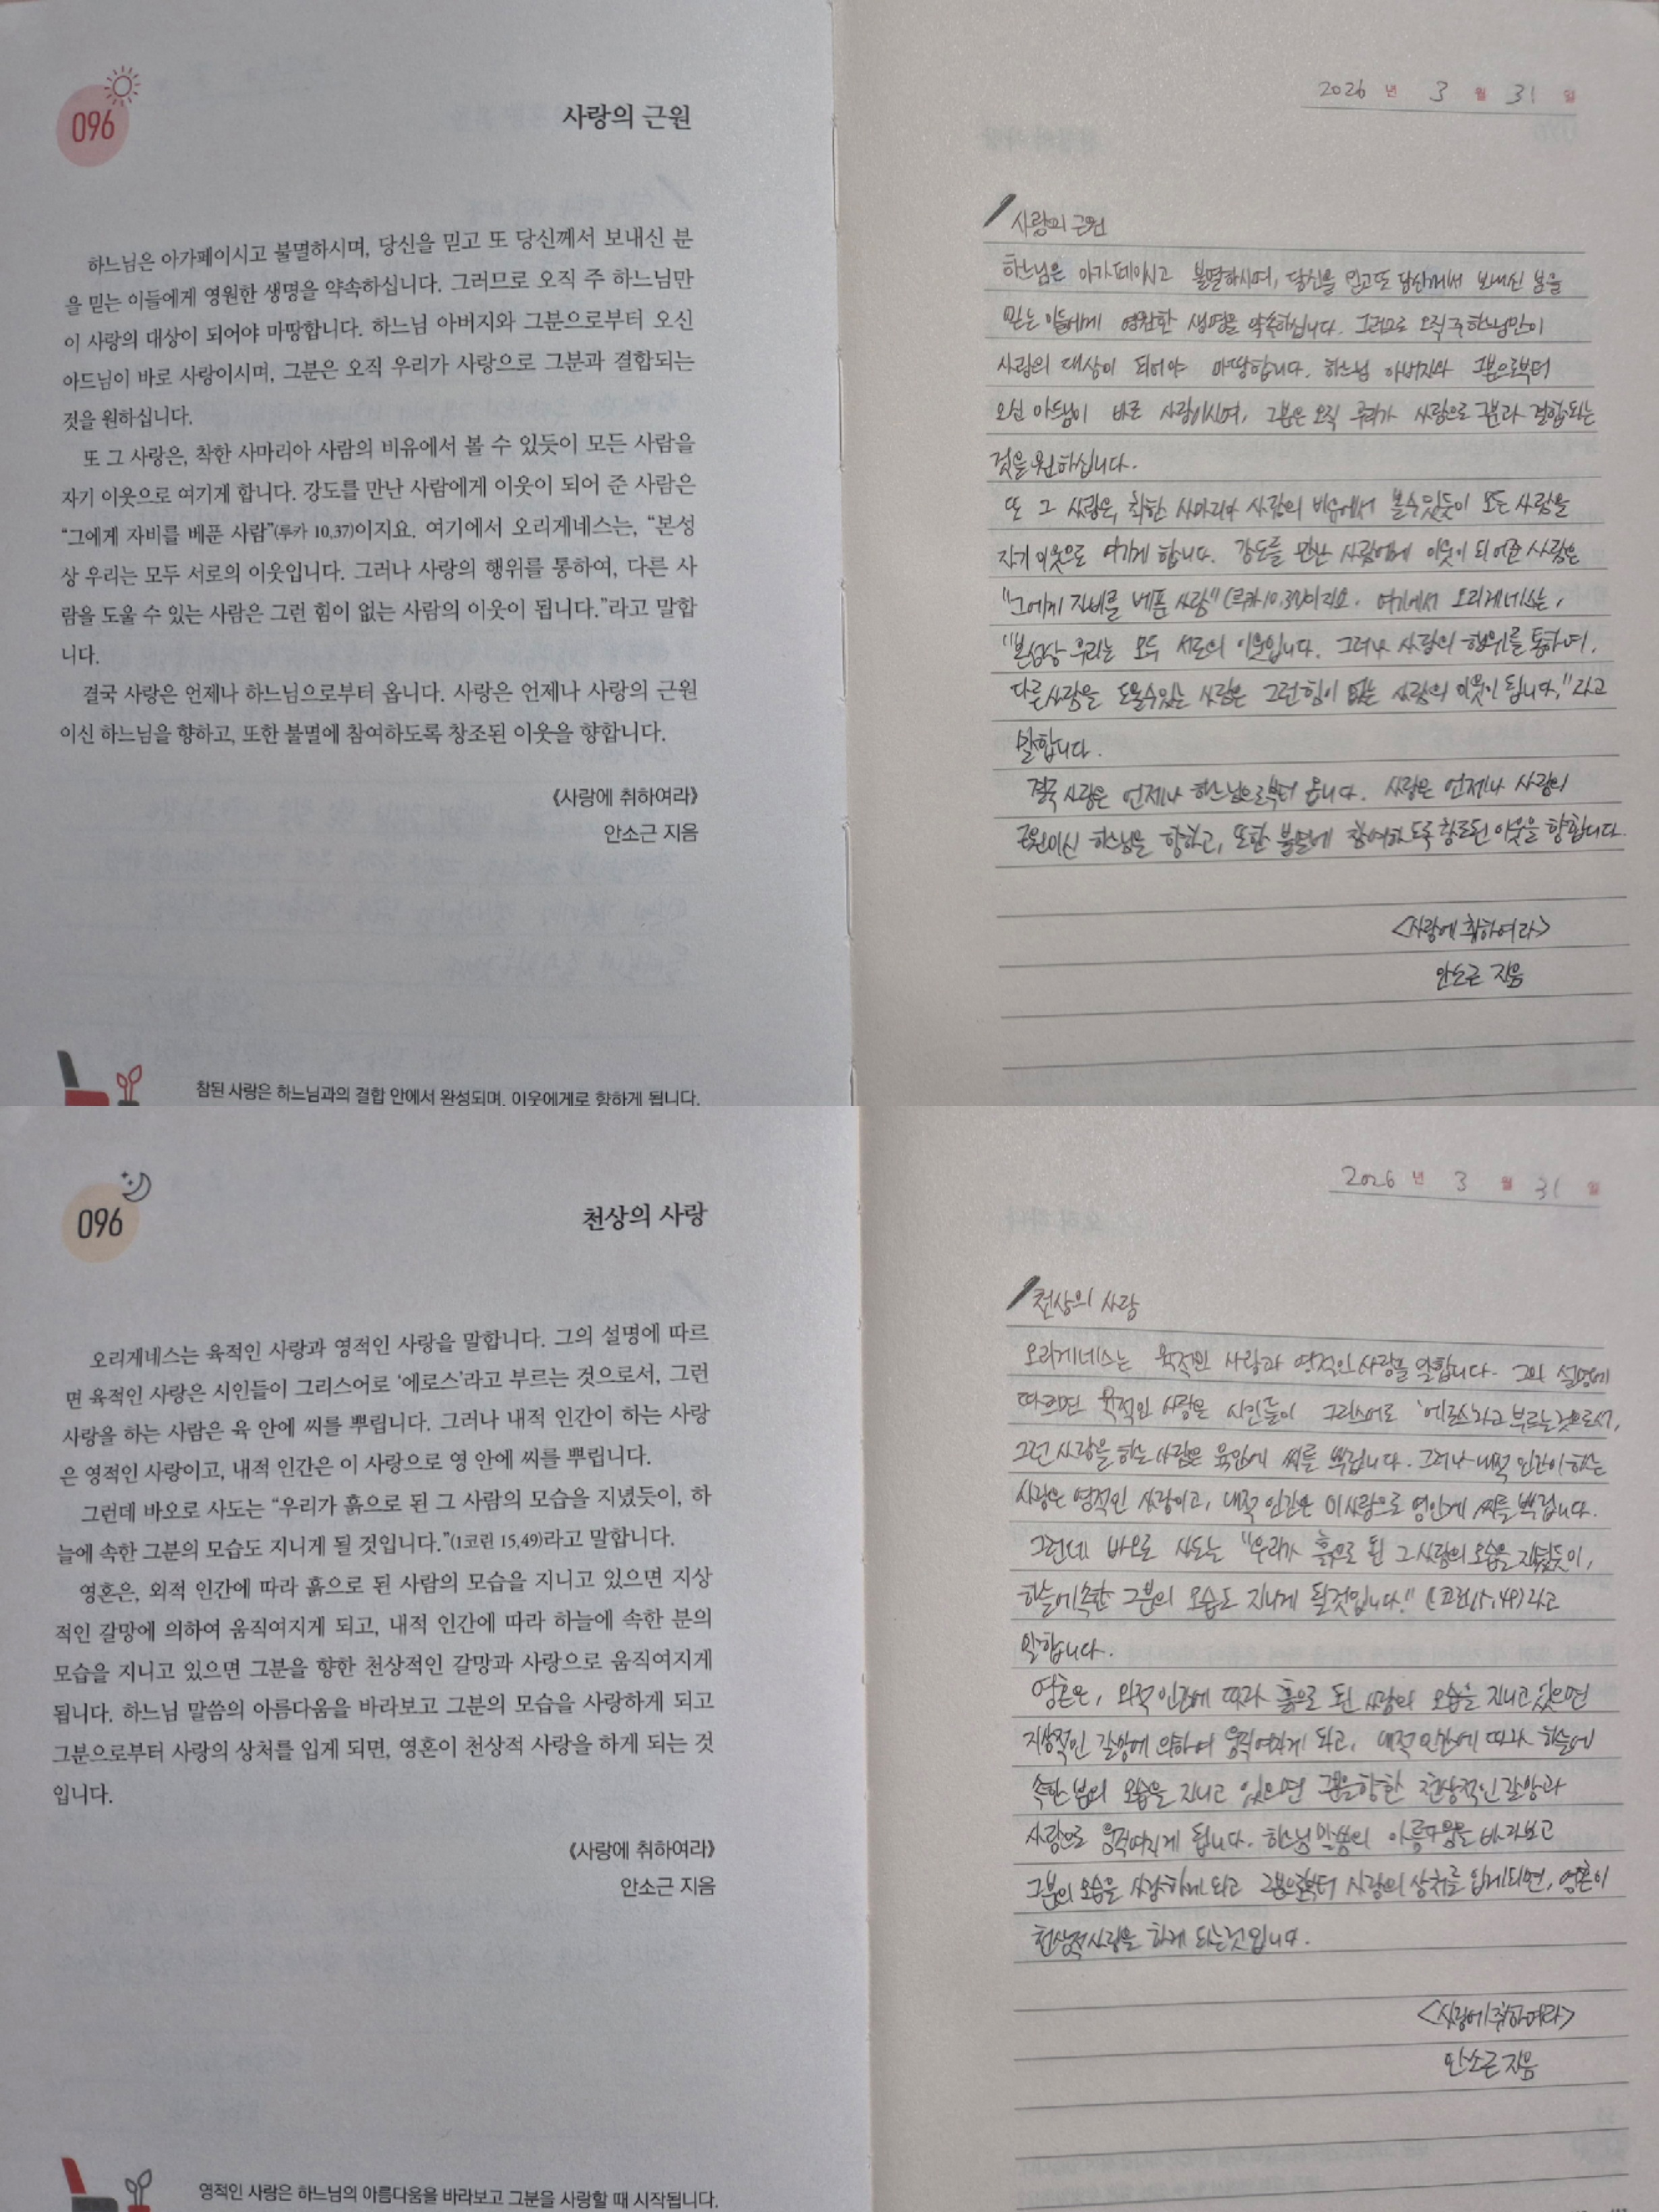 096
사랑의 근원
하느님은 아가페이시고 불멸하시며, 당신을 믿고 또 당신께서 보내신 분
을 믿는 이들에게 영원한 생명을 약속하십니다. 그러므로 오직 주 하느님만
이 사랑의 대상이 되어야 마땅합니다. 하느님 아버지와 그분으로부터 오신
아드님이 바로 사랑이시며, 그분은 오직 우리가 사랑으로 그분과 결합되는
것을 원하십니다.
또 그 사랑은, 착한 사마리아 사람의 비유에서 볼 수 있듯이 모든 사람을
자기 이웃으로 여기게 합니다. 강도를 만난 사람에게 이웃이 되어 준 사람은
“그에게 자비를 베푼 사람”(루카 10,37)이지요. 여기에서 오리게네스는, “본성
상 우리는 모두 서로의 이웃입니다. 그러나 사랑의 행위를 통하여, 다른 사
람을 도울 수 있는 사람은 그런 힘이 없는 사람의 이웃이 됩니다.”라고 말합
니다.
결국 사랑은 언제나 하느님으로부터 옵니다. 사랑은 언제나 사랑의 근원
이신 하느님을 향하고, 또한 불멸에 참여하도록 창조된 이웃을 향합니다.
《사랑에 취하여라》
안소근 지음
참된 사랑은 하느님과의 결합 안에서 완성되며, 이웃에게로 향하게 됩니다.
2026 년 3 월 31 일
사랑의 근원
하느님은 아가페이시고 불멸하시며, 당신을 믿고 또 당신께서 보내신 분을
믿는 이들에게 영원한 생명을 약속하십니다. 그러므로 오직 주 하느님만이
사랑의 대상이 되어야 마땅합니다. 하느님 아버지와 그분으로부터
오신 아드님이 바로 사랑이시며, 그분은 오직 우리가 사랑으로 그분과 결합되는
것을 원하십니다.
또 그 사랑은, 착한 사마리아 사람의 비유에서 볼수있듯이 모든 사람을
자기 이웃으로 여기게 합니다. 강도를 만난 사람에게 이웃이 되어준 사람은
"그에게 자비를 베푼 사람"(루카 10,37)이지요. 여기에서 오리게네스는,
"본성상 우리는 모두 서로의 이웃입니다. 그러나 사랑의 행위를 통하여,
다른사람을 도울수있는 사람은 그런힘이 없는 사람의 이웃이 됩니다."라고
말합니다.
결국 사랑은 언제나 하느님으로부터 옵니다. 사랑은 언제나 사랑의
근원이신 하느님을 향하고, 또한 불멸에 참여하도록 창조된 이웃을 향합니다.
<사랑에 취하여라>
안소근 지음
096
천상의 사랑
오리게네스는 육적인 사랑과 영적인 사랑을 말합니다. 그의 설명에 따르
면 육적인 사랑은 시인들이 그리스어로 ‘에로스’라고 부르는 것으로서, 그런
사랑을 하는 사람은 육 안에 씨를 뿌립니다. 그러나 내적 인간이 하는 사랑
은 영적인 사랑이고, 내적 인간은 이 사랑으로 영 안에 씨를 뿌립니다.
그런데 바오로 사도는 “우리가 흙으로 된 그 사람의 모습을 지녔듯이, 하
늘에 속한 그분의 모습도 지니게 될 것입니다.”(1코린 15,49)라고 말합니다.
영혼은, 외적 인간에 따라 흙으로 된 사람의 모습을 지니고 있으면 지상
적인 갈망에 의하여 움직여지게 되고, 내적 인간에 따라 하늘에 속한 분의
모습을 지니고 있으면 그분을 향한 천상적인 갈망과 사랑으로 움직여지게
됩니다. 하느님 말씀의 아름다움을 바라보고 그분의 모습을 사랑하게 되고
그분으로부터 사랑의 상처를 입게 되면, 영혼이 천상적 사랑을 하게 되는 것
입니다.
《사랑에 취하여라》
안소근 지음
영적인 사랑은 하느님의 아름다움을 바라보고 그분을 사랑할 때 시작됩니다.
2026 년 3 월 31 일
천상의 사랑
오리게네스는 육적인 사랑과 영적인 사랑을 말합니다. 그의 설명에
따르면 육적인 사랑은 시인들이 그리스어로 '에로스'라고 부르는것으로서,
그런 사랑을 하는 사람은 육안에 씨를 뿌립니다. 그러나 내적 인간이 하는
사랑은 영적인 사랑이고, 내적 인간은 이사랑으로 영안에 씨를 뿌립니다.
그런데 바오로 사도는 "우리가 흙으로 된 그 사람의 모습을 지녔듯이,
하늘에 속한 그분의 모습도 지니게 될것입니다." (1코린15,49)라고
말합니다.
영혼은, 외적 인간에 따라 흙으로 된 사람의 모습을 지니고 있으면
지상적인 갈망에 의하여 움직여지게 되고, 내적 인간에 따라 하늘에
속한 분의 모습을 지니고 있으면 그분을향한 천상적인 갈망과
사랑으로 움직여지게 됩니다. 하느님 말씀의 아름다움을 바라보고
그분의 모습을 사랑하게 되고 그분으로부터 사랑의 상처를 입게되면, 영혼이
천상적사랑을 하게 되는것입니다.
<사랑에 취하여라>
안소근 지음